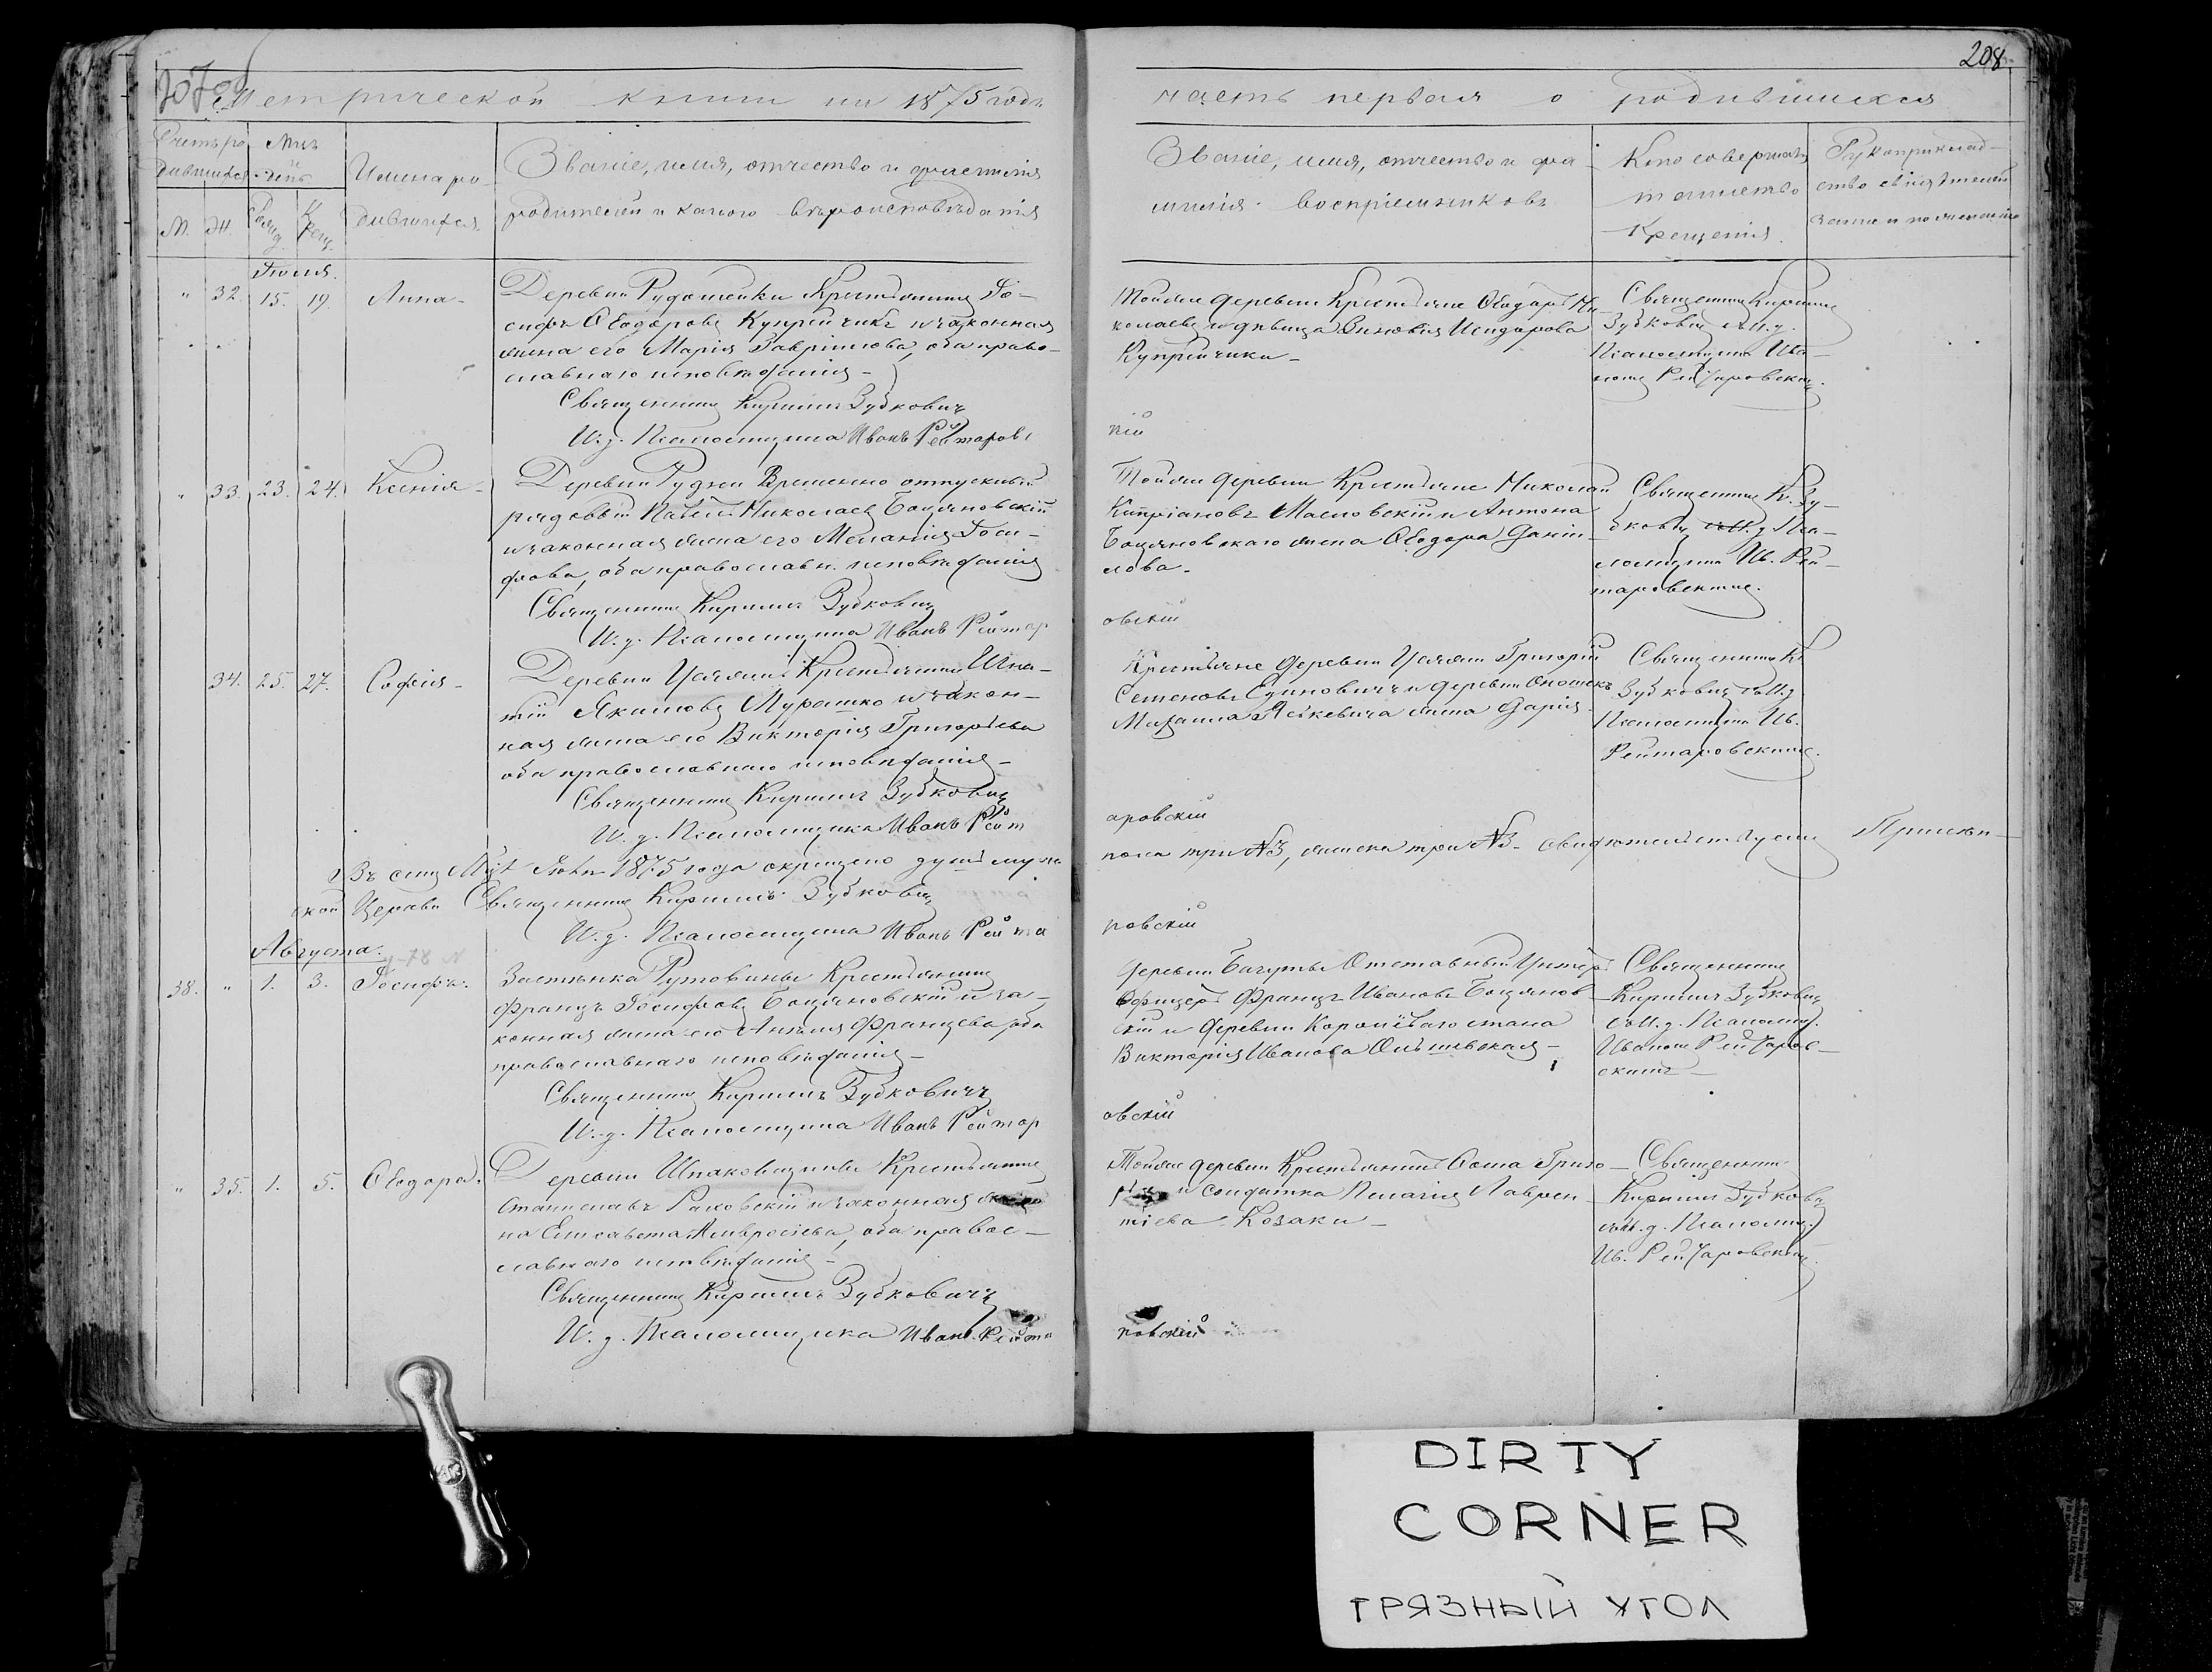 208
Метрической книги на 1875 годъ
часть первая о родившихся
Счетъ ро
дившихся
Мцъ
и
день
Имена ро-
дившихся.
Званіе, имя, отчество и фамилія
родителей и какого вѣроисповѣданія
М. Ж.
Рожд.
Крещ.
Званіе, имя, отчество и фа-
милія воспріемниковъ
Кто совершалъ
таинство
Крещенія.
Рукоприклад-
ство свидѣтелей
записи по желанію
Іюля.
" 32. 15. 19. Анна-
Деревни Крестьянинъ Іо-
сифъ Ѳеодоровъ Купрейчикъ и законная
жена его Марія Гавріилова, оба право-
славнаго исповѣданія-
Священникъ Кириллъ Зубковичъ
И. д. Псаломщика Иванъ Рейтаровс
Тойже деревни Крестьяне Ѳеодоръ Ни-
колаевъ и дѣвица Зиновія Исидорова
Купрейчики-
кій
Священникъ Кириллъ
Зубковичъ съ И. д.
Псаломщика Ива-
номъ Рейтаровским.
" 33. 23. 24. Ксенія-
Деревни Рудни Временно отпускный
рядовой Павелъ Николаевъ Боцяновскій
и законная жена его Меланія Іоси-
фова, оба православн. исповѣданія
Священникъ Кириллъ Зубковичъ
И. д. Псаломщика Иванъ Рейтар
Тойже деревни Крестьяне Николай
Кипріановъ Масловскій и Антона
Боцяновскаго жена Ѳеодора Дани-
лова.
овскій
Священникъ К. Зу-
бковичъ съ И. д. Пса-
ломщика Ив. Рей-
таровскимъ.
34. 25. 27. Софія-
Деревни Крестьянинъ Игна-
тій Якимовъ Мурашко и закон-
ная жена его Викторія Григорьева
оба православнаго исповѣданія-
Священникъ Кириллъ Зубковичъ
И. д. Псаломщика Иванъ Рейт
Крестьяне деревни Григорій
Семеновъ Единовичъ и деревни
Михаила жена Дарія.
аровскій
Священникъ К
Зубковичъ съ И. д
Псаломщика Ив.
Рейтаровскимъ.
Въ семъ Мцѣ Іюлѣ 1875 года окрещено душъ муж
пола три №3, женска три №3- свидѣтельствуемъ
ской Церкви Священникъ Кириллъ Зубковичъ
И. д. Псаломщика Иванъ Рейта
ровскій
Августа.
38. " 1. 3. Іосифъ.
Застѣнка Крестьянинъ
Францъ Іосифовъ Боцяновскій и за-
конная жена его Анѣля Францева, оба
православнаго исповѣданія-
Священникъ Кириллъ Зубковичъ
И. д. Псаломщика Иванъ Рейтар
Деревни Отставный Унтеръ
Офицеръ Францъ Ивановъ Боцянов-
скій и деревни
Викторія Иванова Ольшевская-
овскій
Священникъ
Кириллъ Зубковичъ
съ И. д. Псаломщ.
Иваномъ Рейтаров-
скимъ-
" 35. 1. 5. Ѳеодора.
Деревни Крестьянинъ
Станиславъ Раковскій и законная же
на Елисавета Амвросіева, оба правос-
лавнаго исповѣданія-
Священникъ Кириллъ Зубковичъ
И. д. Псаломщика Иванъ Рейта
Тойже деревни Крестьянинъ Ѳома Григо-
и солдатка Пелагія Лаврен-
тіева Козаки-
ровскій
Священникъ
Кириллъ Зубковичъ
съ И. д. Псаломщ.
Ив. Рейтаровскимъ.
DIRTY
CORNER
ГРЯЗНЫЙ УГОЛ